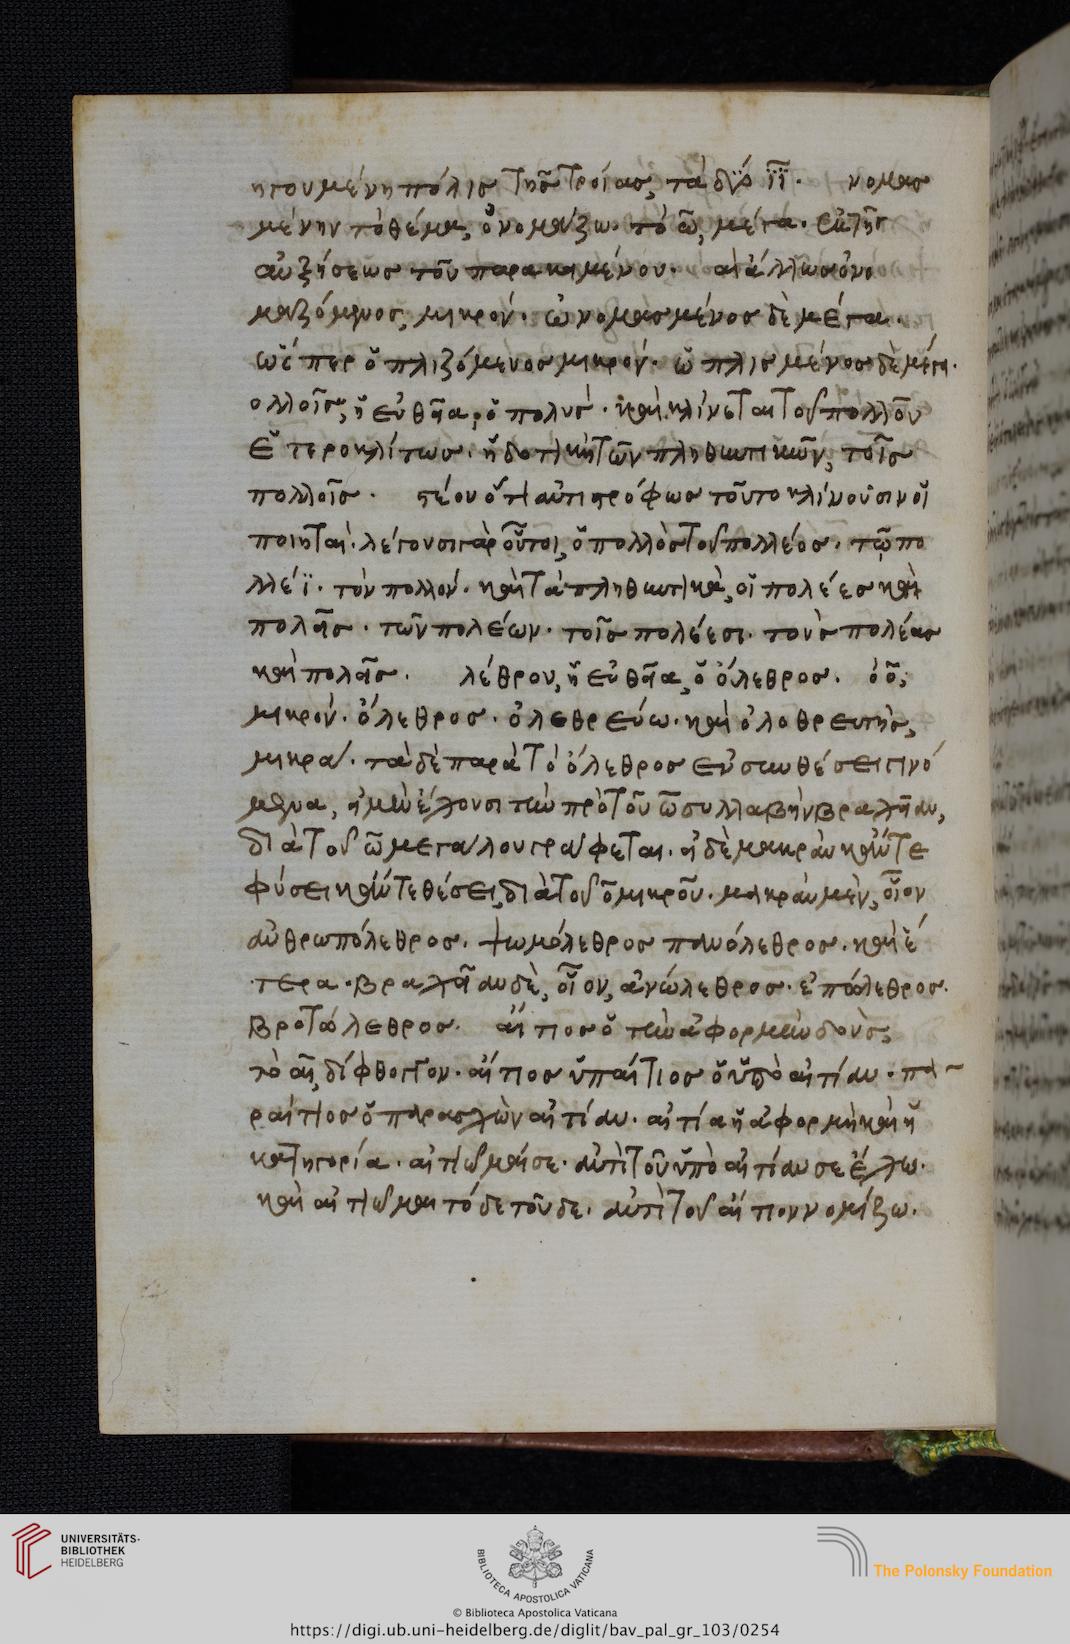 ηγουμένη πόλις τῆς τροίας, τὰ δύο ϊϊ. νομασ
μένην τὸ θέμα, ὀνομάζω. τὸ ω, μέγα. ἐκ τῆς
αὐξήσεως τοῦ παρακειμένου. ὀνο
μαζόμενος, μικρόν. ὠνομασμένος δὲ μέγα.
ὥσπερ ὁπλιζόμενος μικρόν. ὡπλισμένος δὲ μέγα.
ολλοῖς, ἡ εὐθεῖα, ὁ πολύς. καὶ κλίνεται τοῦ πολλοῦ
ἑτεροκλίτως. ἡ δοτικὴ τῶν πληθυντικῶν, τοῖς
πολλοῖς. ἰστέον ὅτι ἀντιστρόφως τοῦτο κλίνουσιν οἱ
ποιηταί. λέγουσι γὰρ οὗτοι, ὁ πολλὸς τοῦ πολλέος. τῷ πο
λλέϊ. τὸν πολλόν. καὶ τὰ πληθυντικὰ, οἱ πολέες καὶ
πολεῖς. τῶν πολέων. τοῖς πολέεσι. τοὺς πολέας
καὶ πολεῖς. λέθρον, ἡ εὐθεῖα, ὁ ὄλεθρος. ὁ ο,
μικρόν. ὄλεθρος. ὀλεθρεύω. καὶ ὀλοθρευτὴς,
μικρά. τὰ δὲ παρὰ τὸ ὄλεθρος ἐν συνθέσει γινό
μενα, εἰ μὲν ἔχουσι τὴν πρὸ τοῦ ω συλλαβὴν βραχεῖαν,
διὰ τοῦ ω μεγάλου γράφεται. εἰ δὲ μακρὰν κἄν τε
φύσει κἄν τε θέσει, διὰ τοῦ ο μικροῦ. μακρὰν μὲν, οἷον
ἀνθρωπόλεθρος. ψωμόλεθρος πανόλεθρος. καὶ ἕ
τερα. βραχεῖαν δὲ, οἷον, ἀνώλεθρος. ἐπώλεθρος.
βροτώλεθρος. αἴτιος ὁ τὴν ἀφορμὴν δοὺς,
τὸ αι, δίφθογγον. αἴτιος ὑπαίτιος ὁ ὑπὸ αἰτίαν. πα
ραίτιος ὁ παρασχὼν αἰτίαν. αἰτία ἡ ἀφορμὴ καὶ ἡ
κατηγορία. αἰτιῶμαί σε. ἀντὶ τοῦ ὑπὸ αἰτίαν σε ἔχω.
καὶ αἰτιῶμαι τόδε τοῦδε. ἀντὶ τοῦ αἴτιον νομίζω.
UNIVERSITÄTS-
BIBLIOTHEK
HEIDELBERG
BIBLIOTECA APOSTOLICA VATICANA
The Polonsky Foundation
© Biblioteca Apostolica Vaticana
https://digi.ub.uni-heidelberg.de/diglit/bav_pal_gr_103/0254